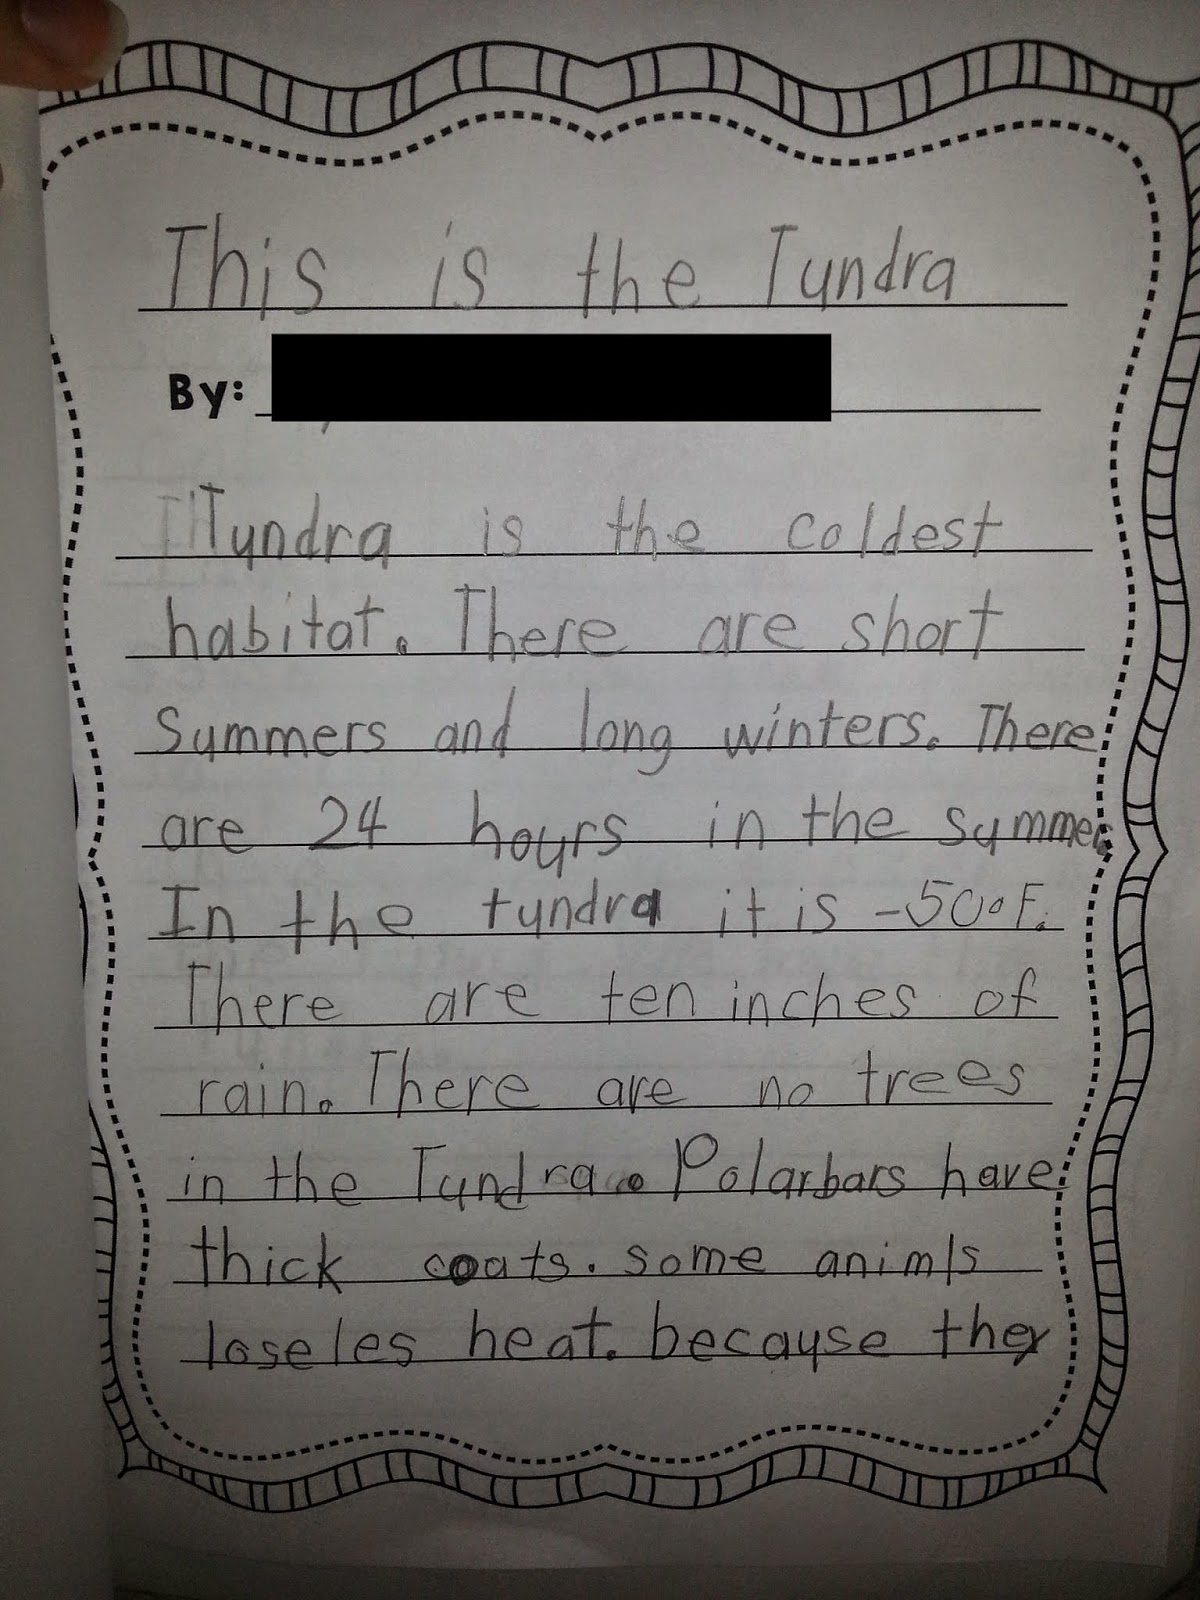 This is the Tundra
By:
Tundra is the coldest
habitat. There are short
Summers and long winters. There
are 24 hours in the summer.
In the tundra it is -50°F.
There are ten inches of
rain. There are no trees
in the Tundra. Polarbars have
thick coats. some animls
lose les heat. because they